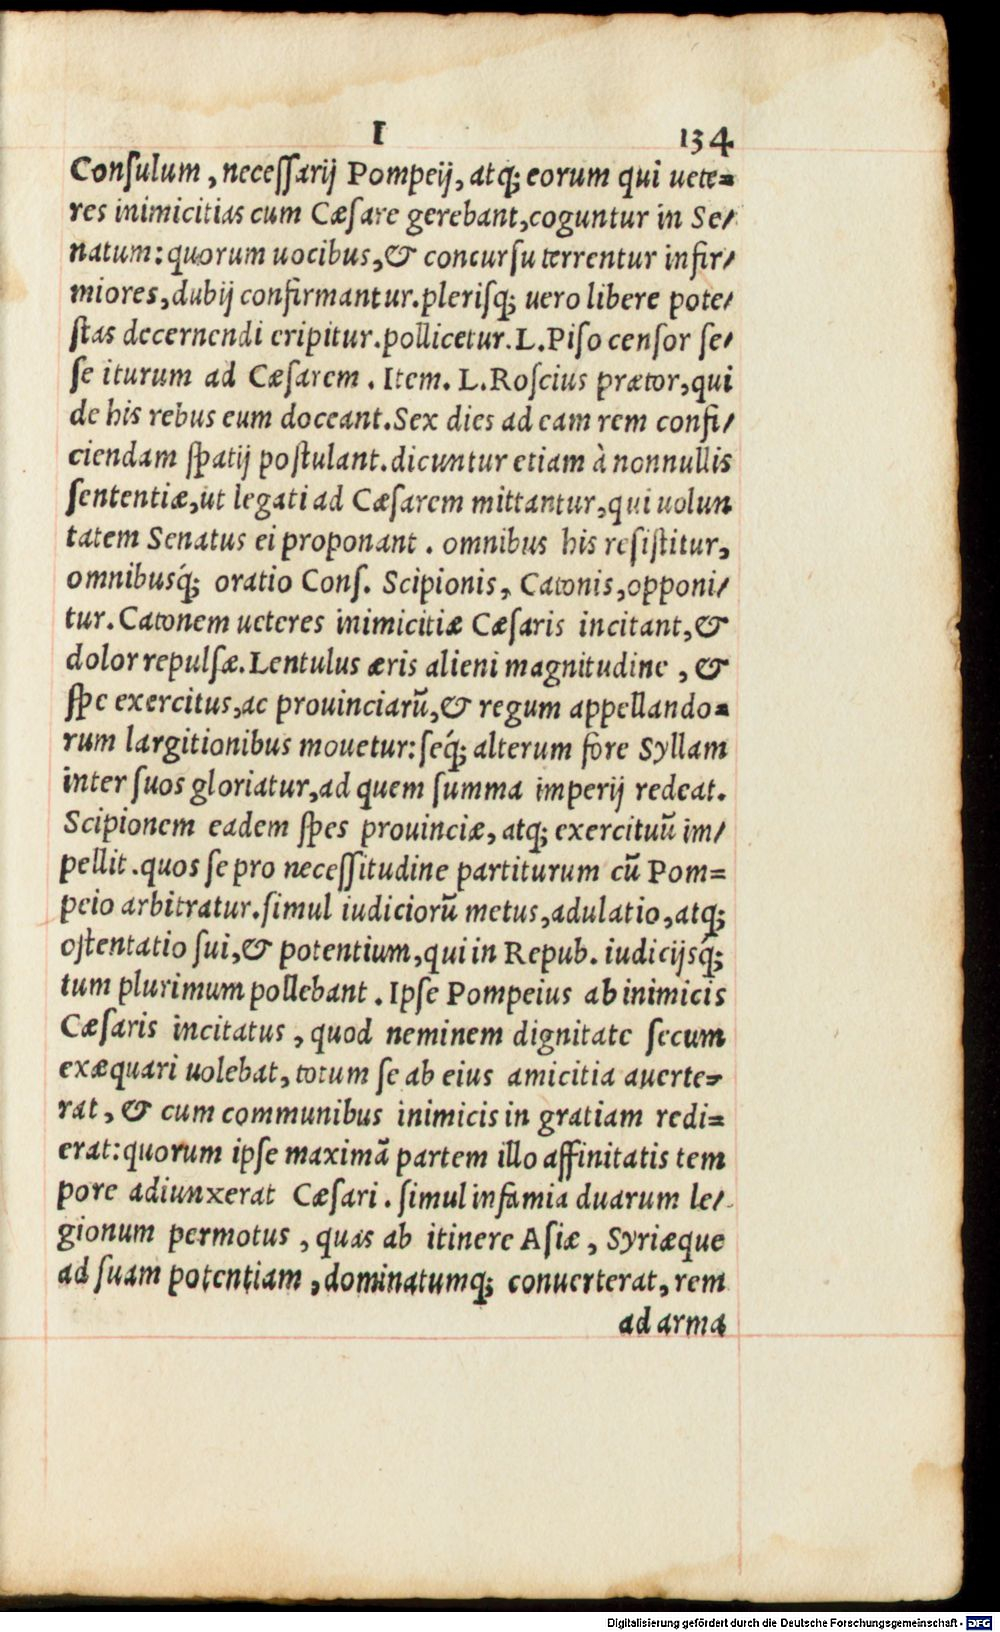 I 134
Conſulum, neceſſarij Pompeij, atq; eorum qui uete=
res inimicitias cum Cæſare gerebant, coguntur in Se/
natum: quorum uocibus, & concurſu terrentur infir/
miores, dubij confirmantur. pleriſq; uero libere pote/
ſtas decernendi eripitur. pollicetur. L. Piſo cenſor ſe/
ſe iturum ad Cæſarem. Item. L. Roſcius prætor, qui
de his rebus eum doceant. Sex dies ad eam rem confi/
ciendam ſpatij poſtulant. dicuntur etiam à nonnullis
ſententiæ, ut legati ad Cæſarem mittantur, qui uolun
tatem Senatus ei proponant. omnibus his reſiſtitur,
omnibusq́; oratio Conſ. Scipionis, Catonis, opponi/
tur. Catonem ueteres inimicitiæ Cæſaris incitant, &
dolor repulſæ. Lentulus æris alieni magnitudine, &
ſpe exercitus, ac prouinciarũ, & regum appellando=
rum largitionibus mouetur: ſeq́; alterum fore Syllam
inter ſuos gloriatur, ad quem ſumma imperij redeat.
Scipionem eadem ſpes prouinciæ, atq; exercituũ im/
pellit. quos ſe pro neceſſitudine partiturum cũ Pom=
peio arbitratur. ſimul iudiciorũ metus, adulatio, atq;
oſtentatio ſui, & potentium, qui in Repub. iudicijsq́;
tum plurimum pollebant. Ipſe Pompeius ab inimicis
Cæſaris incitatus, quod neminem dignitate ſecum
exæquari uolebat, totum ſe ab eius amicitia auerte=
rat, & cum communibus inimicis in gratiam redi=
erat: quorum ipſe maximã partem illo affinitatis tem
pore adiunxerat Cæſari. ſimul infamia duarum le/
gionum permotus, quas ab itinere Aſiæ, Syriæque
ad ſuam potentiam, dominatumq; conuerterat, rem
ad arma
Digitalisierung gefördert durch die Deutsche Forschungsgemeinschaft - DFG